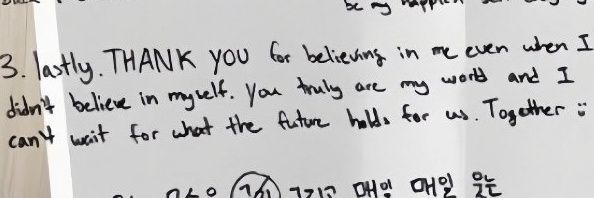 be my happier
3. lastly. THANK YOU for believing in me even when I
didn't believe in myself. You truly are my world and I
can't wait for what the future holds for us. Together ü
그리고 매일 매일 웃는